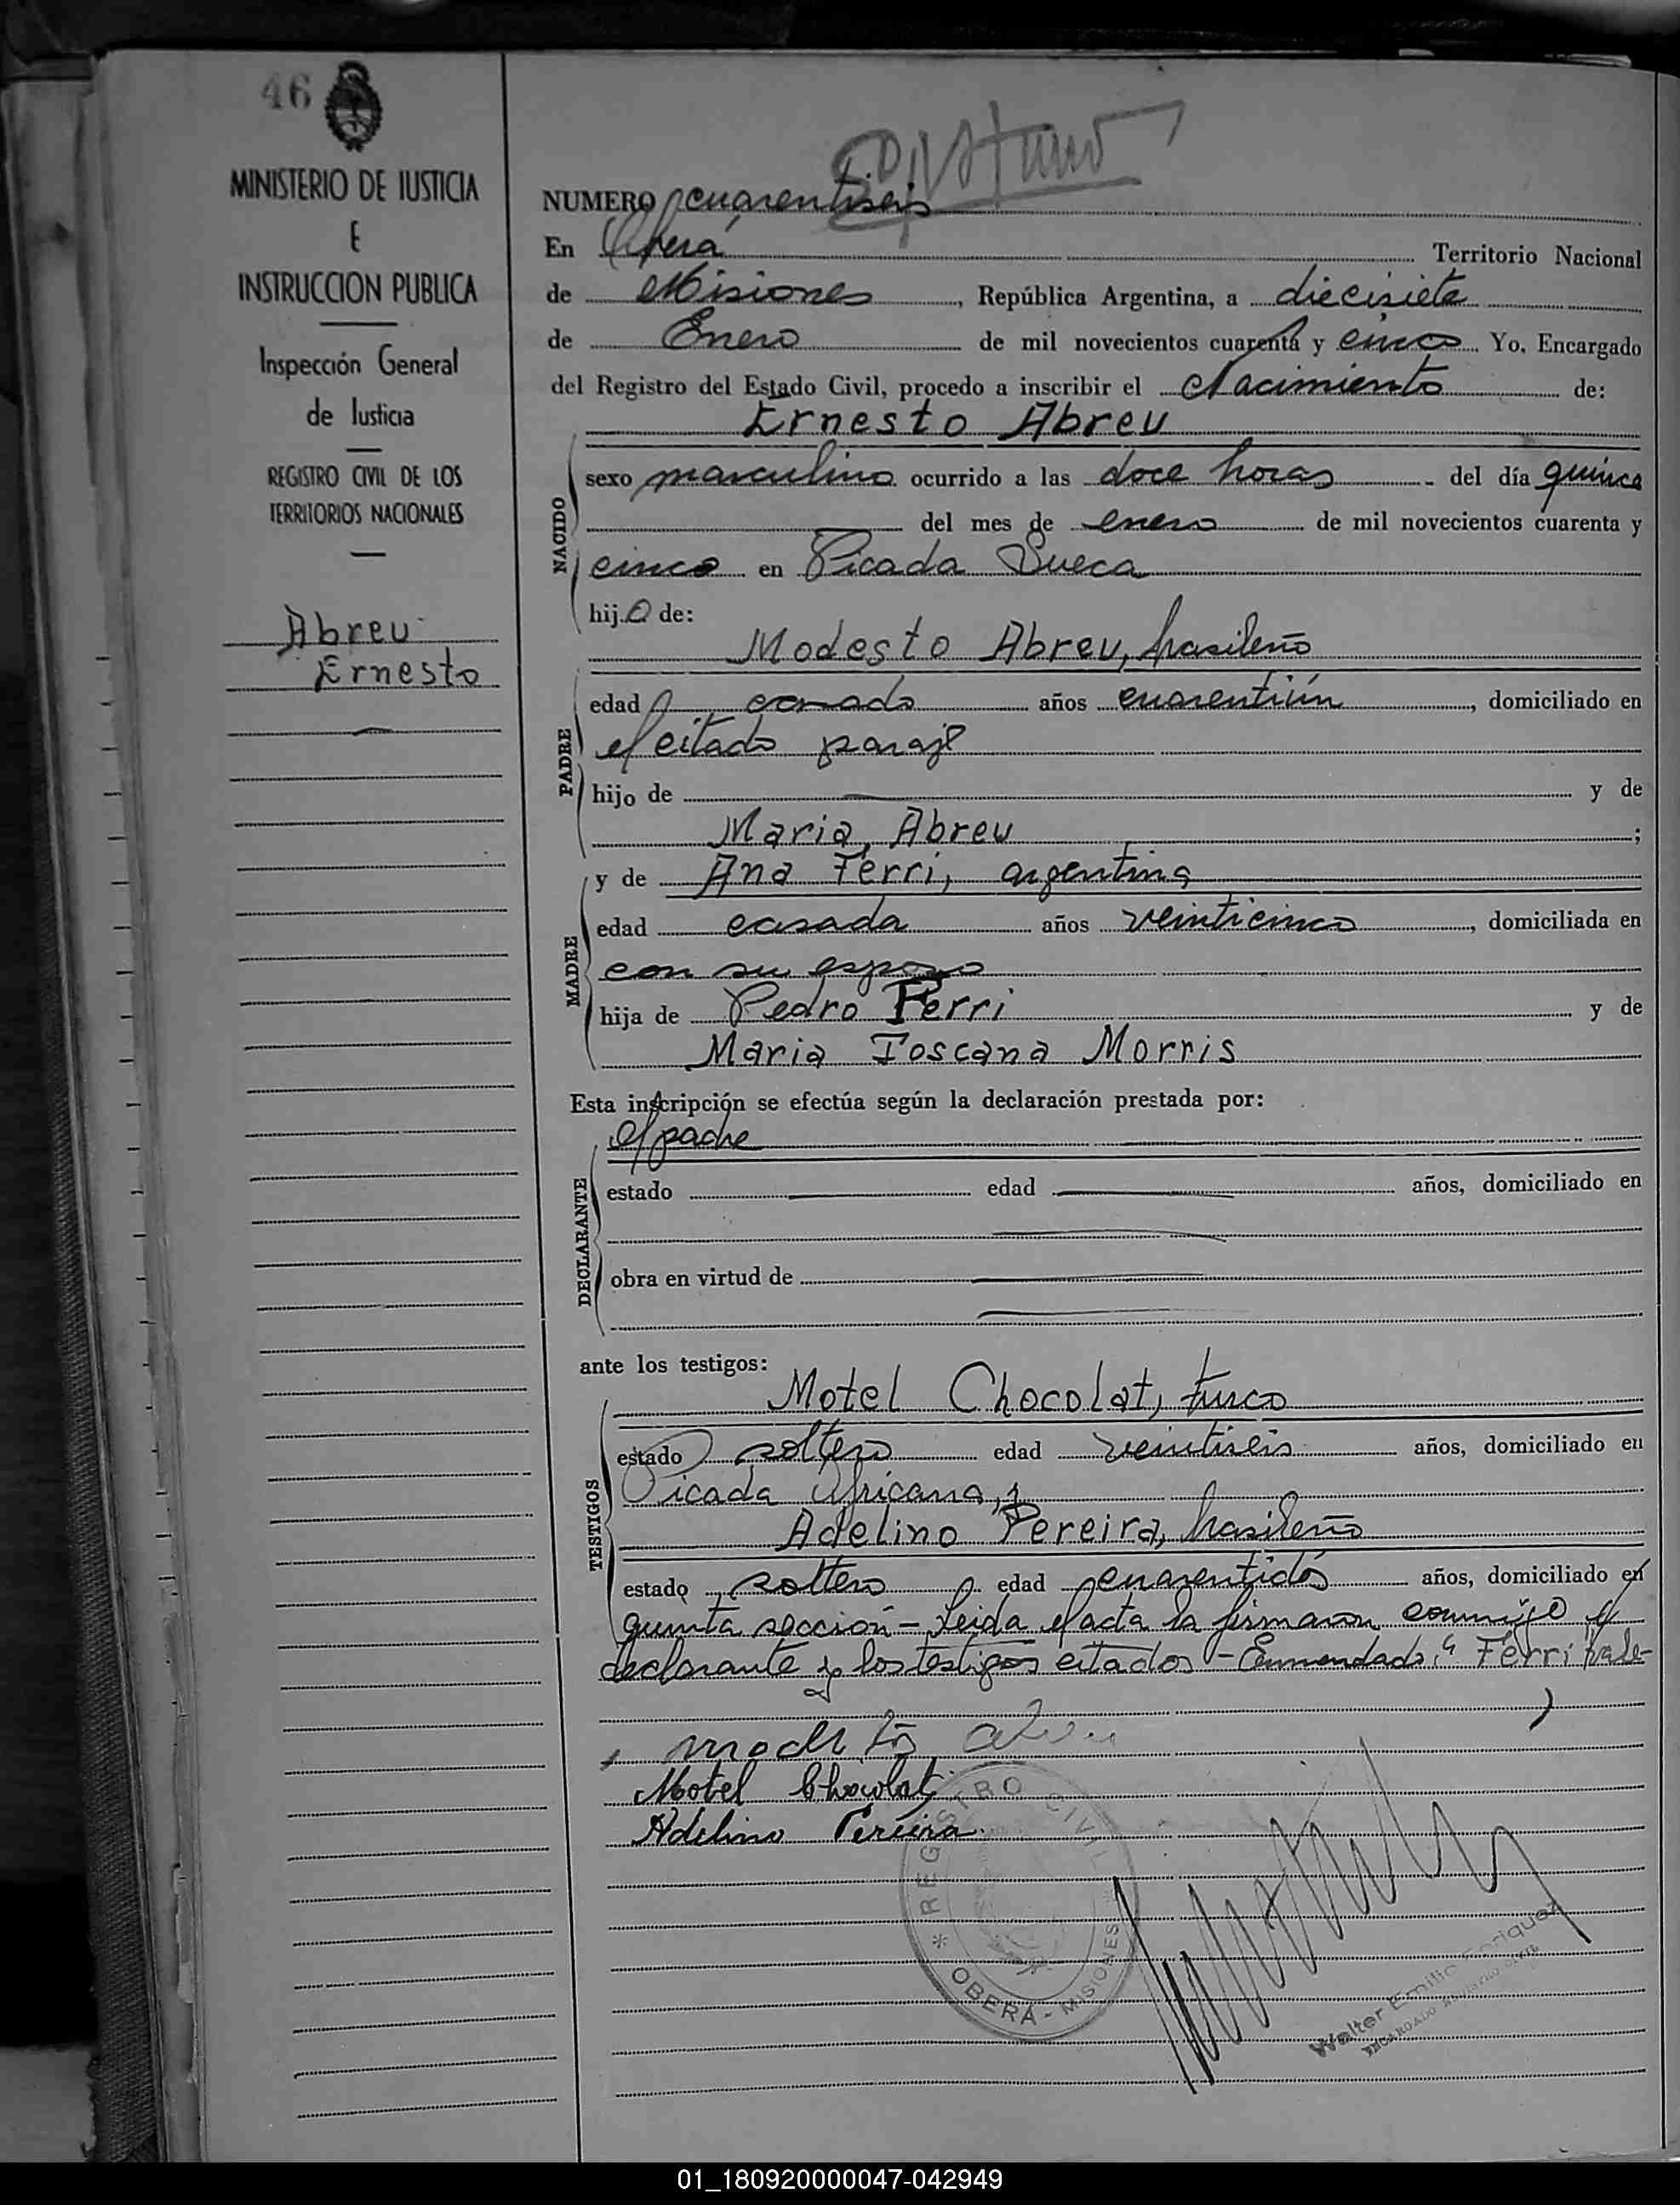 46
MINISTERIO DE JUSTICIA
E
INSTRUCCION PUBLICA
Inspección General
de Justicia
REGISTRO CIVIL DE LOS
TERRITORIOS NACIONALES
Abreu
Ernesto
NUMERO cuarentiseis
En Oberá Territorio Nacional
de Misiones, República Argentina, a diecisiete
de Enero de mil novecientos cuarenta y cinco Yo, Encargado
del Registro del Estado Civil, procedo a inscribir el Nacimiento de:
Ernesto Abreu
NACIDO
sexo masculino ocurrido a las doce horas del día quince
del mes de enero de mil novecientos cuarenta y
cinco en Picada Sueca
hijo de:
Modesto Abreu, brasileño
PADRE
edad casado años cuarentiún, domiciliado en
el citado paraje
hijo de y de
Maria Abreu;
y de Ana Ferri, argentina
MADRE
edad casada años veinticinco, domiciliada en
con su esposo
hija de Pedro Ferri y de
Maria Toscana Morris
Esta inscripción se efectúa según la declaración prestada por:
el padre
DECLARANTE
estado edad años, domiciliado en
obra en virtud de
ante los testigos:
Motel Chocolat, turco
TESTIGOS
estado soltero edad veintiseis años, domiciliado en
Picada Africana, y
Adelino Pereira, brasileño
estado soltero edad cuarentidós años, domiciliado en
quinta sección - Leida el acta la firmaron conmigo el
declarante y los testigos citados - Enmendado: " Ferri vale-
modesto abreu
Motel Chocolat
Adelino Pereira
* REGISTRO CIVIL
OBERA - MISIONES
Walter Emilio Enriquez
ENCARGADO REGISTRO CIVIL
01_180920000047-042949